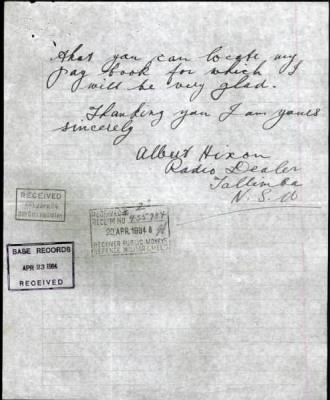 that you can locate my
pay book for which I
will be very glad.
Thanking you I am yours
sincerely
Albert Hixon
Radio Dealer
Tallimba
N.S.W
RECEIVED
RECEIPT NO 435984
20 APR. 1934
RECEIVER PUBLIC MONEYS
BASE RECORDS
APR 23 1934
RECEIVED